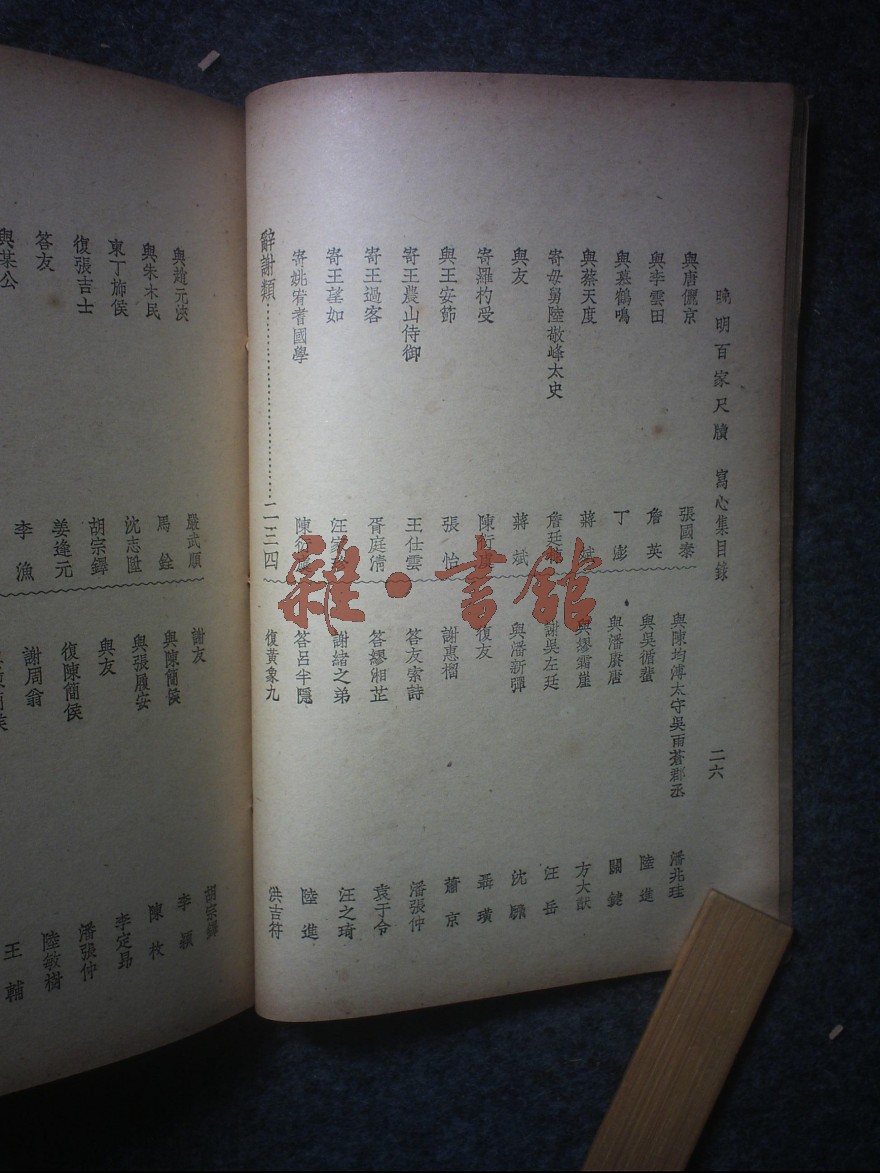 晚明百家尺牘 寫心集目錄
二六
與唐儷京 張國泰
與李雲田 詹英
與慕鶴鳴 丁澎
與蔡天度 蔣斌
寄母舅陸敬峰太史 詹廷
與友 蔣斌
寄羅杓受 陳衍
與王安節 張怡
寄王農山侍御 王仕雲
寄王過客 胥庭清
寄王望如 汪家
寄姚宥耆國學 陳
辭謝類 二三四
與陳均溥太守吳雨蒼郡丞 潘兆珪
與吳循蜚 陸進
與潘賡唐 關鍵
與繆霜崖 方大猷
謝吳左廷 汪岳
與潘新彈 沈顥
復友 聶璜
謝惠榴 蕭京
答友索詩 潘張仲
答繆湘芷 袁于令
謝緒之弟 汪之琦
答呂半隱 陸進
復黃象九 洪吉符
與趙元浹 嚴武順
與朱木民 馬銓
柬丁斾侯 沈志
復張吉士 胡宗鐸
答友 姜逢元
與某公 李漁
謝友 胡宗鐸
與陳簡侯 李穎
與張履安 陳枚
與友 李定昂
復陳簡侯 潘張仲
謝周翁 陸敏樹
王輔
雜·書館